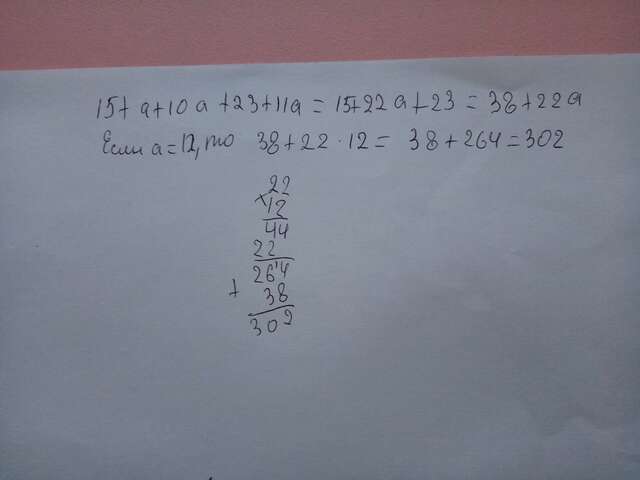 15+a+10a+23+11a=15+22a+23=38+22a
Если a=12, то 38+22·12=38+264=302
22
×12
44
22
264
+ 38
302